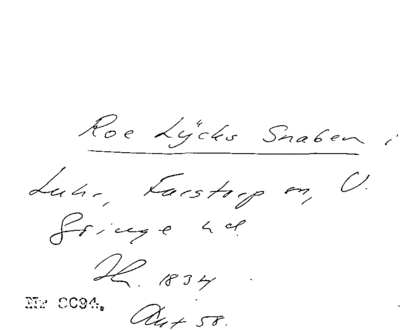 Roe Lÿcks Snaben i
Luhr, Farstorp sn, V.
Göinge hd.
Th. 1834
Nr 0094. Akt 58.